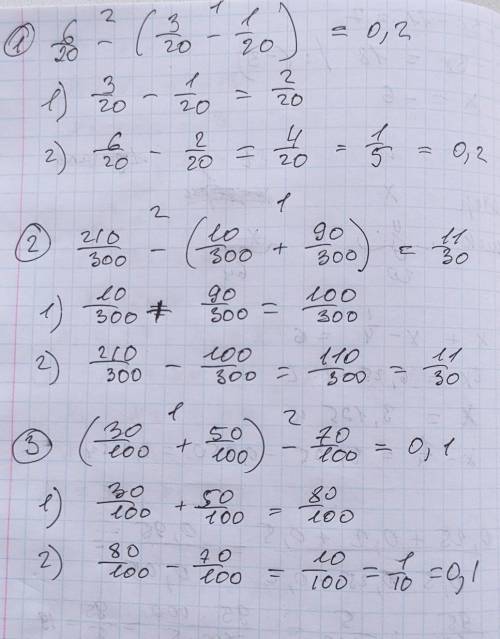 ① 6/20 -² (3/20 -¹ 1/20) = 0,2
1) 3/20 - 1/20 = 2/20
2) 6/20 - 2/20 = 4/20 = 1/5 = 0,2
② 210/300 -² (10/300 +¹ 90/300) = 11/30
1) 10/300 + 90/300 = 100/300
2) 210/300 - 100/300 = 110/300 = 11/30
③ (30/100 +¹ 50/100) -² 70/100 = 0,1
1) 30/100 + 50/100 = 80/100
2) 80/100 - 70/100 = 10/100 = 1/10 = 0,1